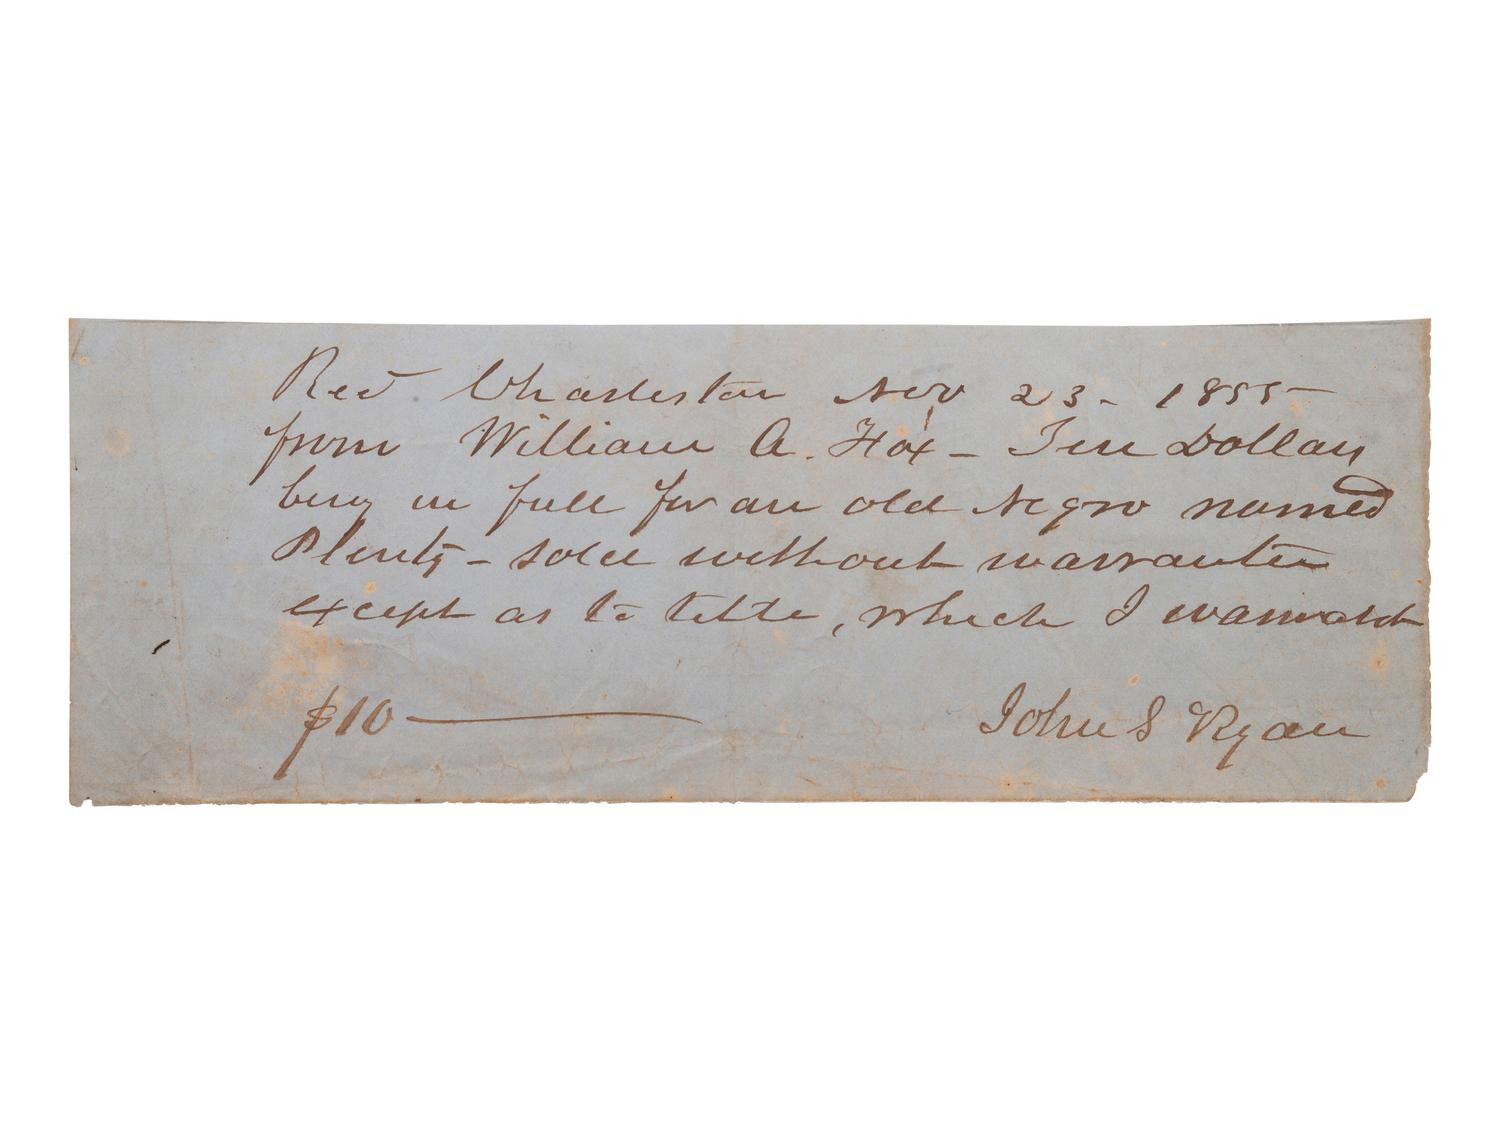 Recd Charleston Nov 23 - 1855 -
from William A. Fox - Ten Dollars
being in full for an old Negro named
Plenty - sold without warrantee
except as to title, which I warrant
$10 ———
John S Ryan